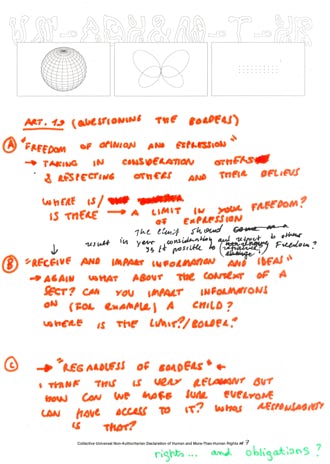 ART. 19 (QUESTIONING THE BORDERS)
A "FREEDOM OF OPINION AND EXPRESSION"
→ TAKING IN CONSIDERATION OTHERS
& RESPECTING OTHERS AND THEIR BELIEVS
WHERE IS /
IS THERE → A LIMIT IN YOUR FREEDOM?
OF EXPRESSION
The limit should
result in your consideration and respect to others
Is it possible to Freedom?
B "RECEIVE AND IMPART INFORMATION AND IDEAS"
→ AGAIN WHAT ABOUT THE CONTEXT OF A
SECT? CAN YOU IMPART INFORMATIONS
ON (FOR EXAMPLE) A CHILD?
WHERE IS THE LIMIT?/BORDER?
C → "REGARDLESS OF BORDERS" ←
I THINK THIS IS VERY RELEVANT BUT
HOW CAN WE MAKE SURE EVERYONE
CAN HAVE ACCESS TO IT? WHOS RESPONSABILITY
IS THAT?
Collective Universal Non-Authoritarian Declaration of Human and More-Than-Human Rights of ?
rights... and obligations?